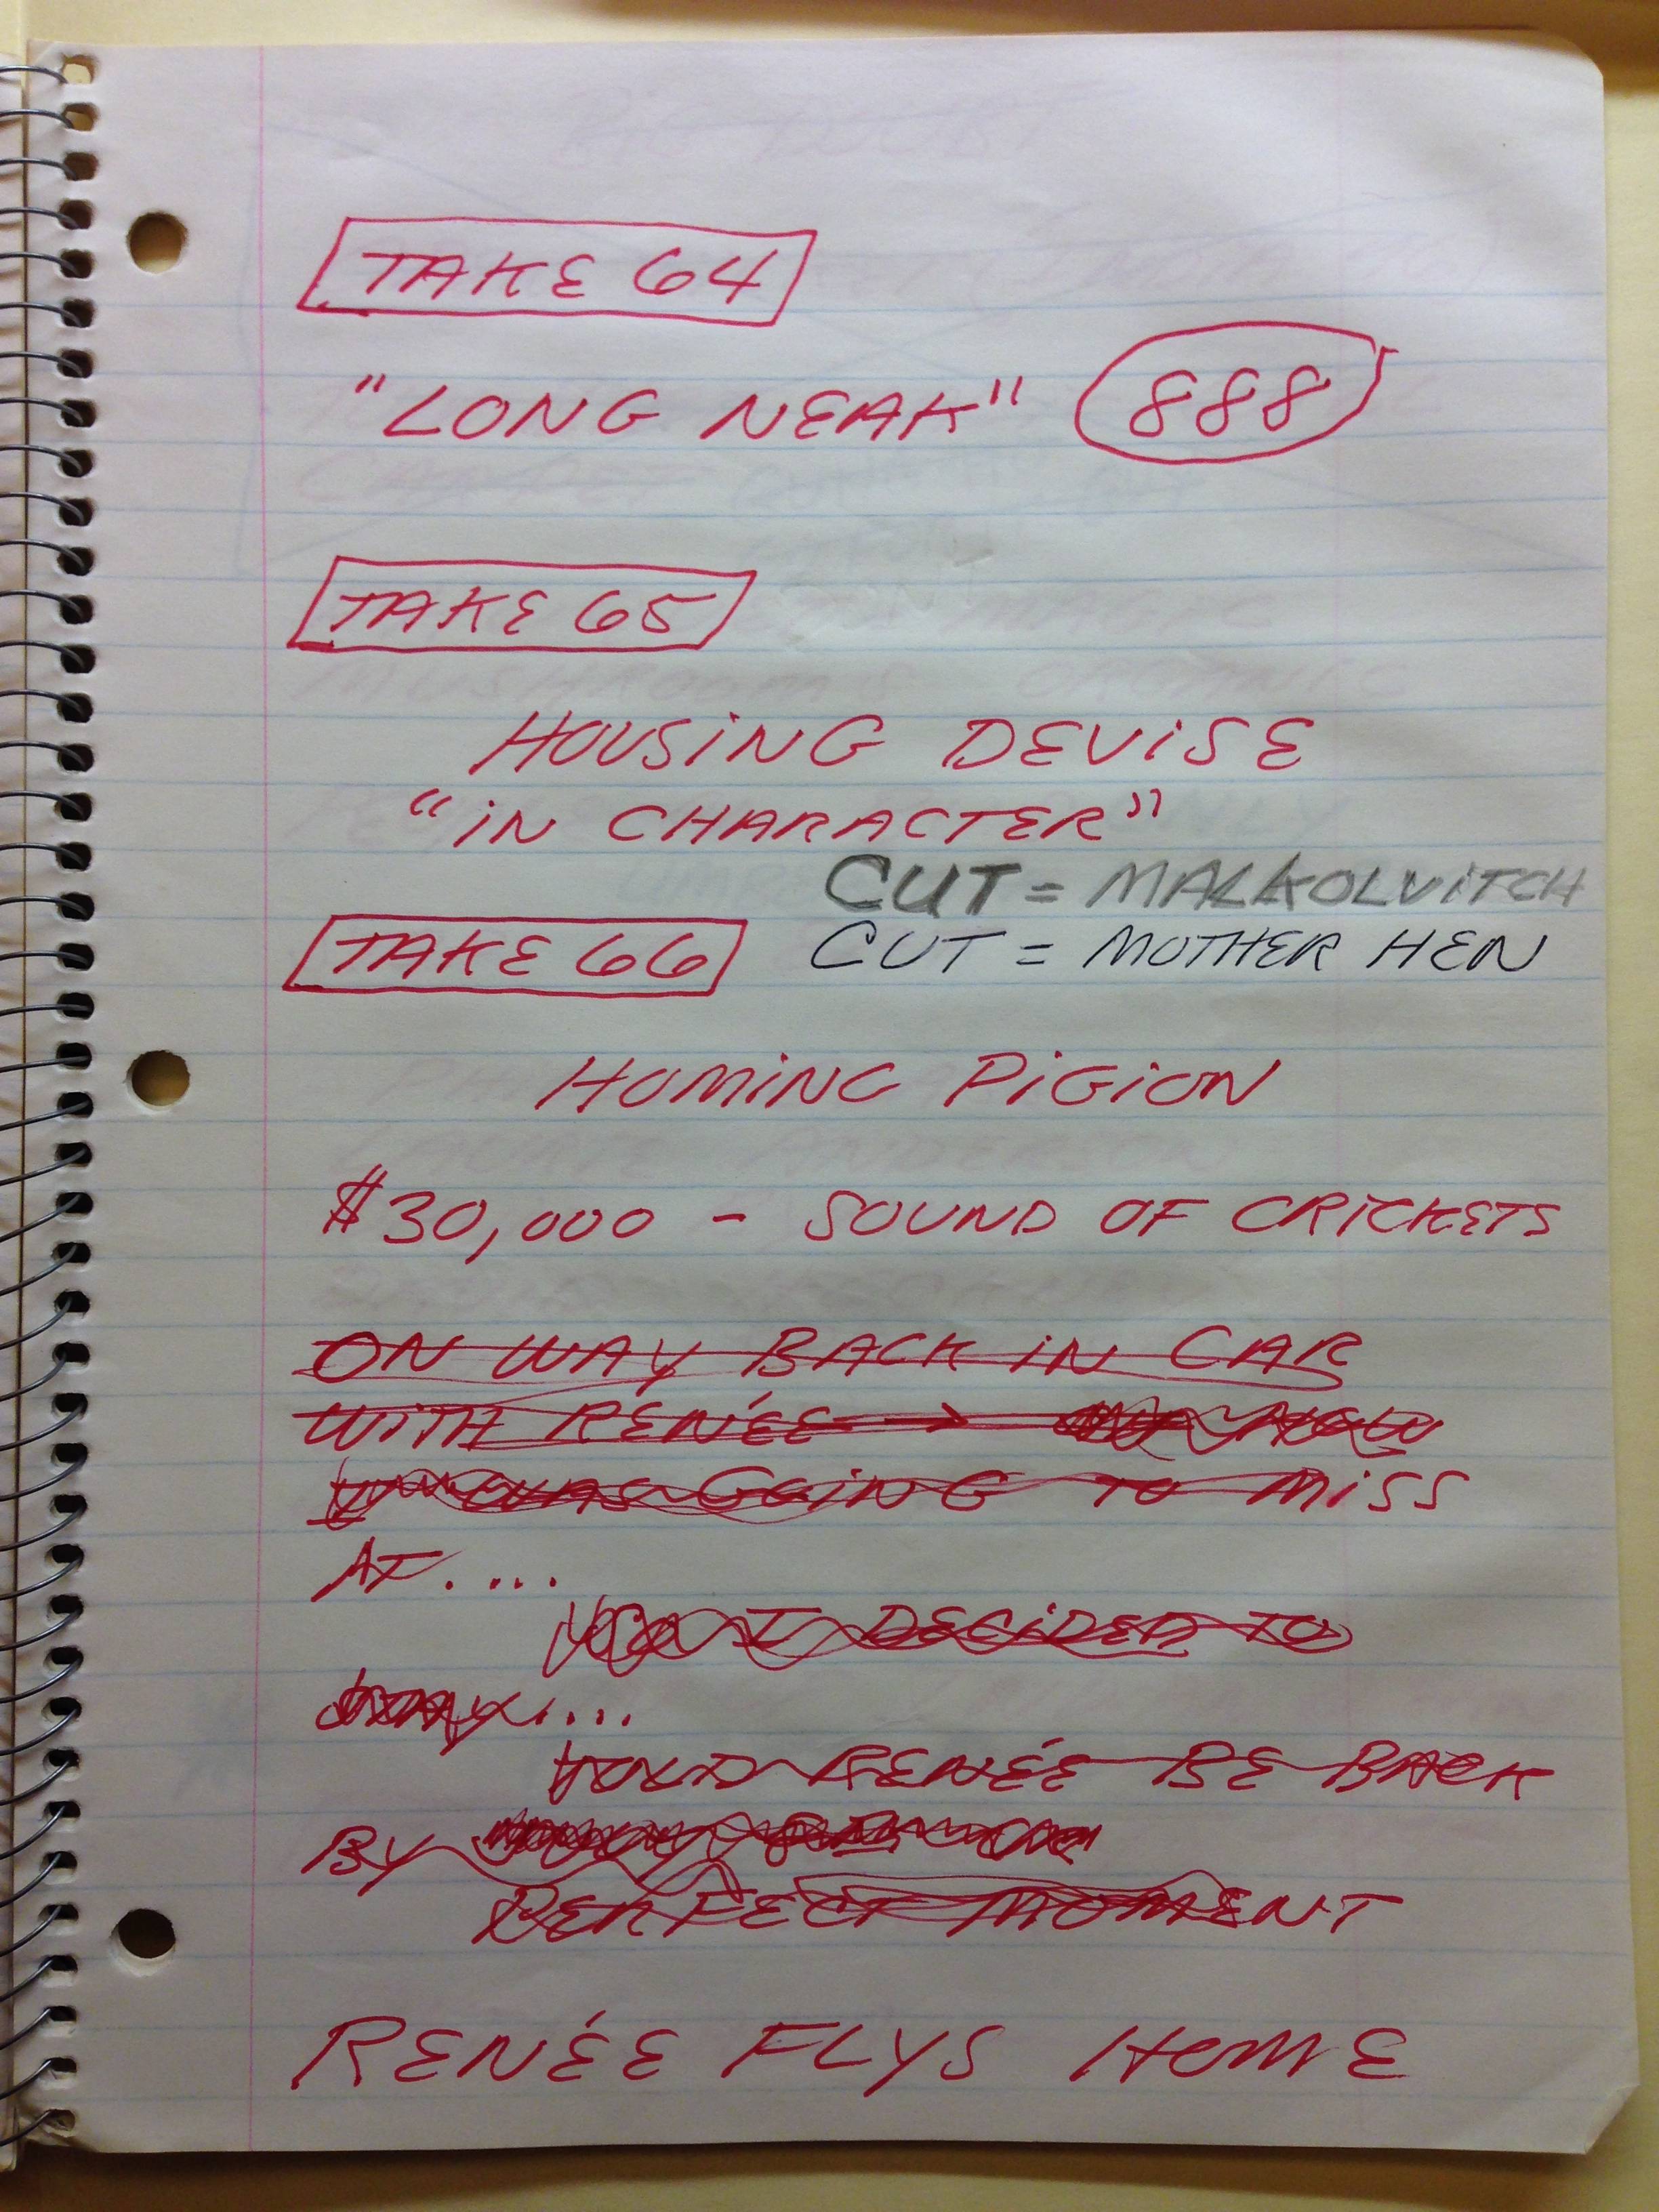 TAKE 64
"LONG NEAK" 888
TAKE 65
HOUSING DEVISE
"IN CHARACTER"
CUT = MALKOLVITCH
TAKE 66 CUT = MOTHER HEN
HOMING PIGION
$30,000 - SOUND OF CRICKETS
ON WAY BACK IN CAR
WITH RENÉE →
I WAS GOING TO MISS
AT....
I DECIDED TO
STAY....
TOLD RENÉE BE BACK
BY
PERFECT MOMENT
RENÉE FLYS HOME